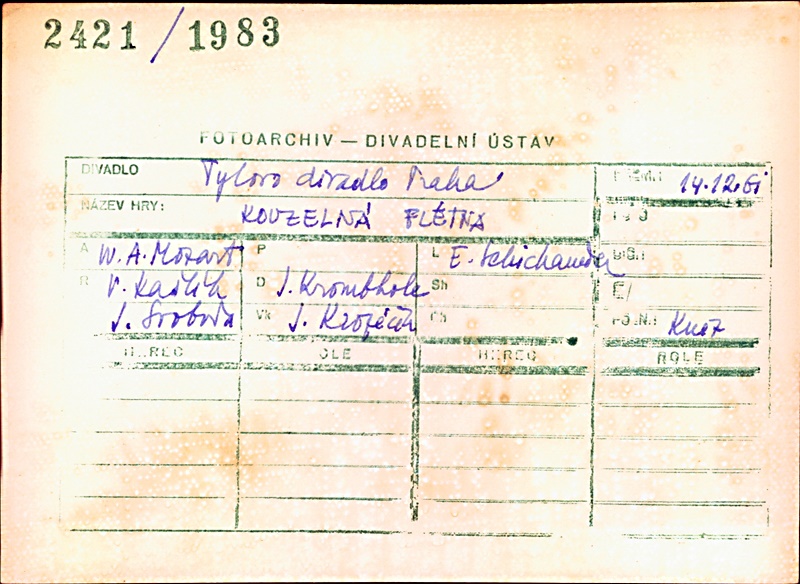 2421/1983
FOTOARCHIV — DIVADELNÍ ÚSTAV
DIVADLO Tylovo divadlo Praha PREM.: 14.12.61
NÁZEV HRY: KOUZELNÁ FLÉTNA
A W. A. Mozart P L E. Schikaneder
R V. Kašlík D J. Krombholc Sh
J. Svoboda Vk J. Kropáček Ch POZN.: Knož
HEREC ROLE HEREC ROLE